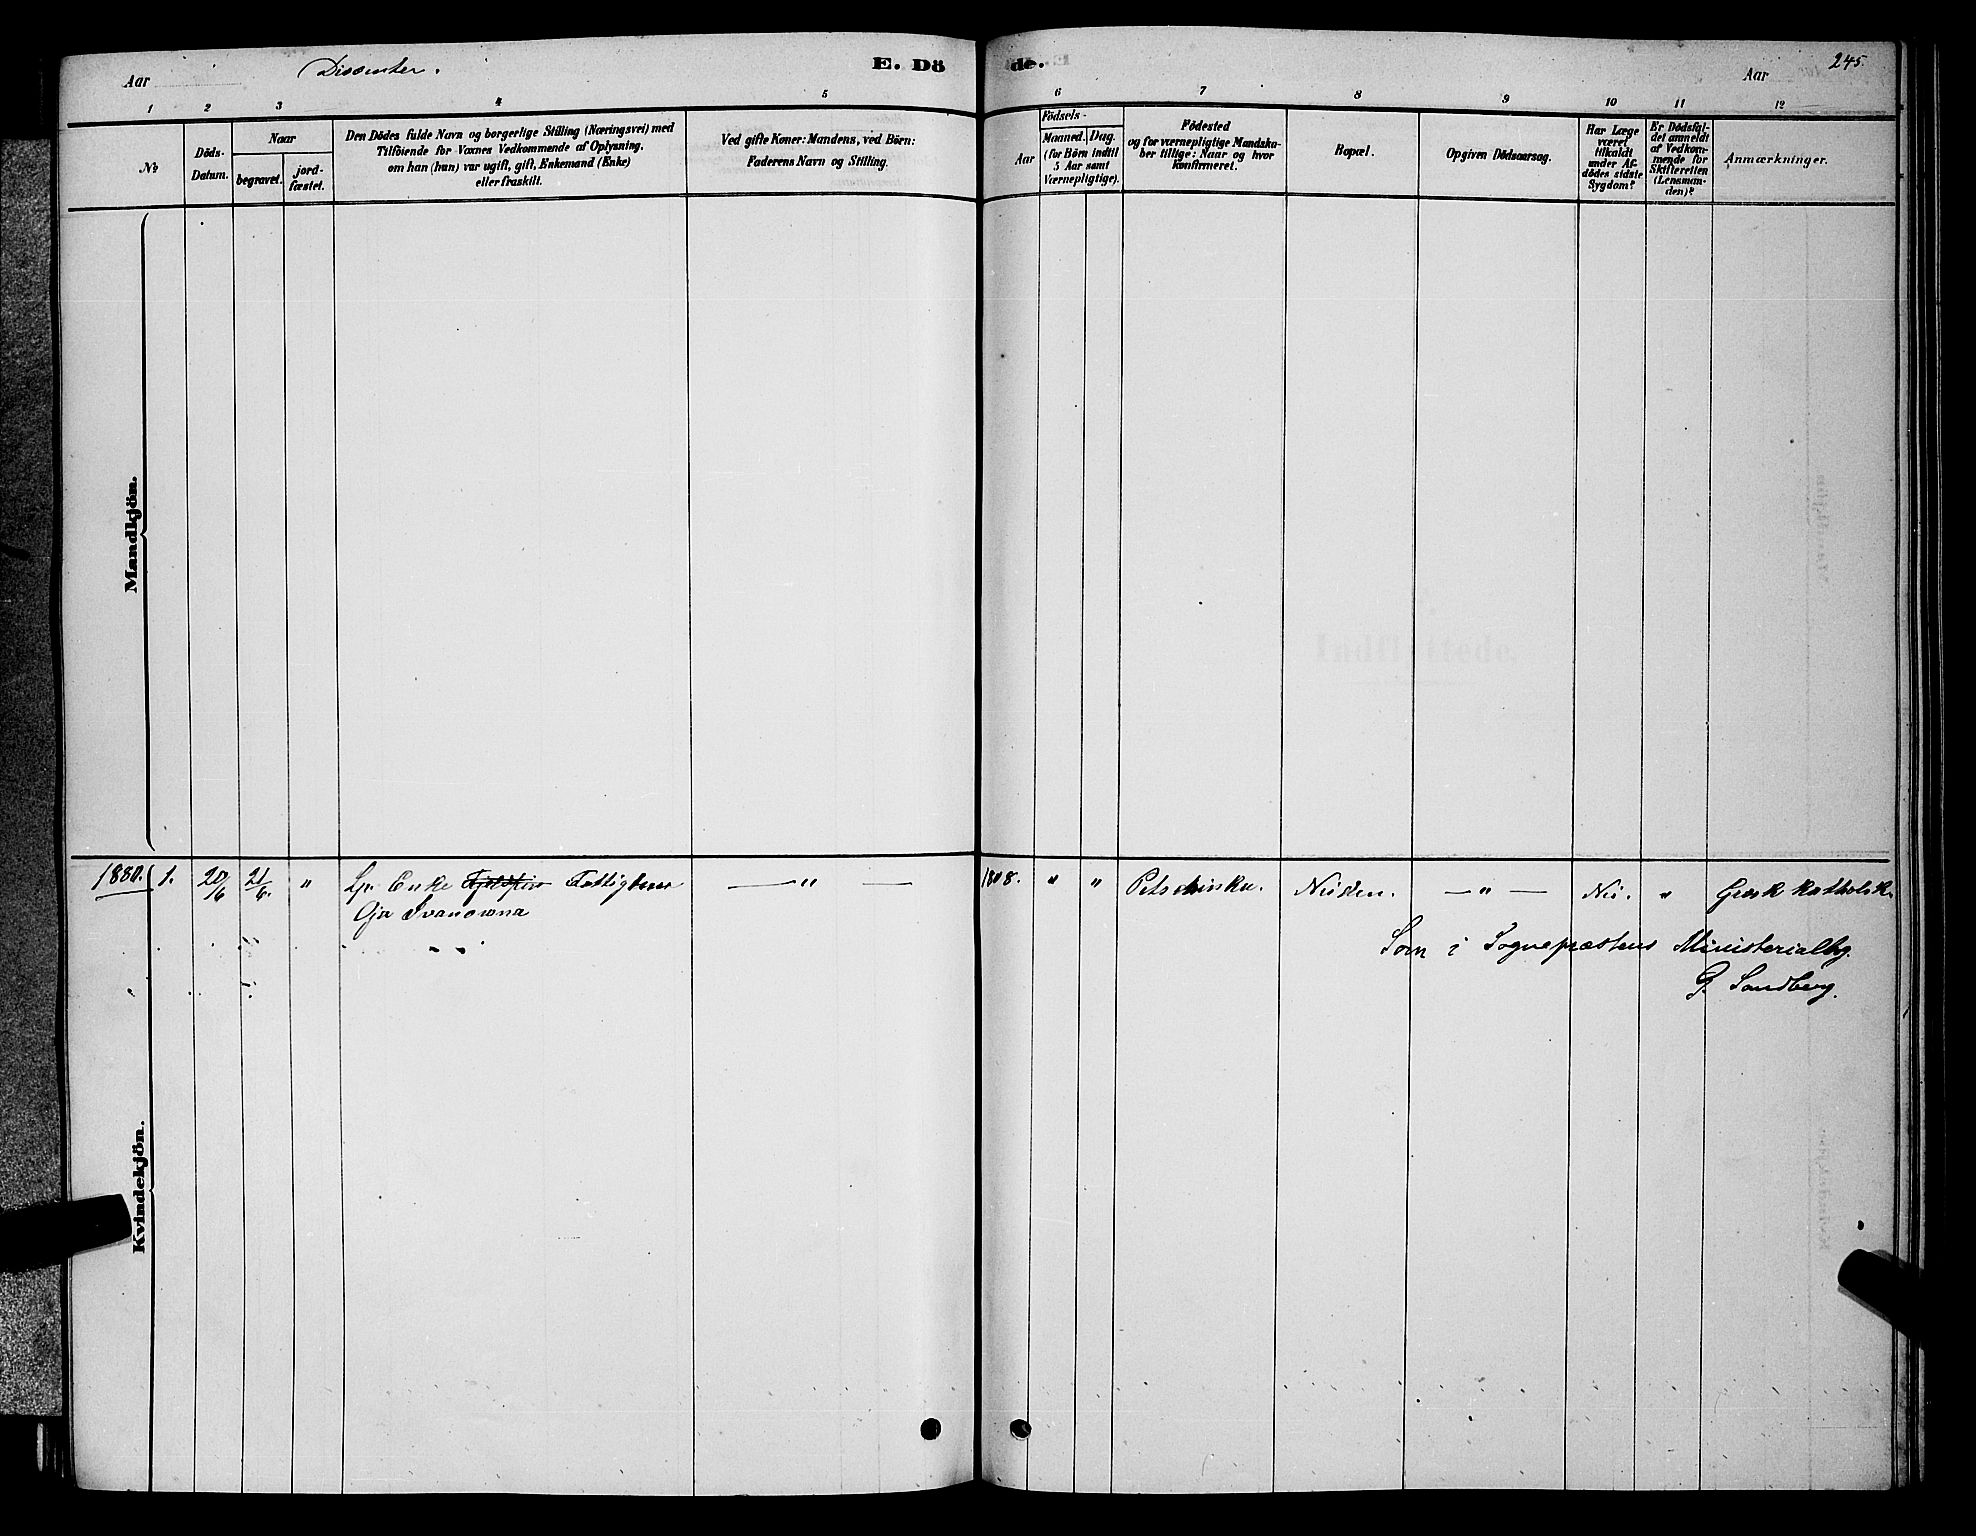 Aar
Dissenter.
E. Dö
de.
Aar
245.
1
2
3
4
5
6
7
8
9
10
11
12
No
Döds-
Datum.
Naar
begravet.
jord-
fæstet.
Den Dödes fulde Navn og borgerlige Stilling (Næringsvei) med
Tilföiende for Voxnes Vedkommende af Oplysning.
om han (hun) var ugift, gift, Enkemand (Enke)
eller fraskilt.
Ved gifte Koner: Mandens, ved Börn:
Faderens Navn og Stilling.
Födsels-
Aar
Maaned.
Dag.
(for Börn indtil
5 Aar samt
Værnepligtige).
Födested
og for værnepligtige Mandska-
ber tillige: Naar og hvor
konfirmeret.
Bopæl.
Opgiven Dödsaarsag.
Har Læge
været
tilkaldt
under Af-
dödes sidste
Sygdom?
Er Dödsfal-
det anmeldt
af Vedkom-
mende for
Skifteretten
(Lensman-
den)?
Anmærkninger.
Mandkjön.
Indflyttede.
1880. 1. 20/6 21/6. " Lp. Enke Fattiglem — " — 1808. " " Petschinka. Neiden. — " — Nei. " Græsk katholsk.
Oja Ivanowna
Som i Sognepræstens Ministerialbg.
G. Sandberg.
Kvindekjön.